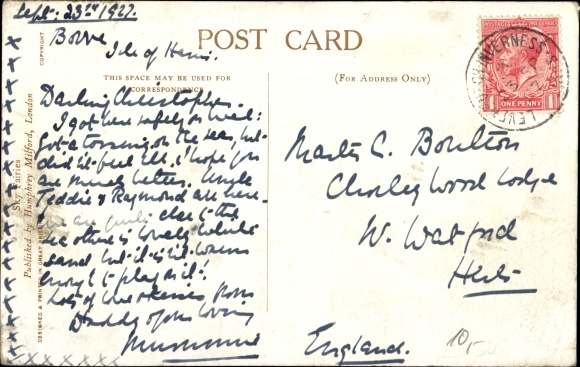 Sept. 23rd 1927.
Borve
Isle of Harris.
POST CARD
THIS SPACE MAY BE USED FOR
CORRESPONDENCE
(FOR ADDRESS ONLY)
COPYRIGHT
Sky Fairies
Published by Humphrey Milford, London
DESIGNED & PRINTED IN GREAT BRITAIN
Darling Christopher.
I got here safely & well:
Got a tossing on the sea, but
didn't feel ill. I hope you
are much better. Uncle
Teddie & Raymond are here.
We are quite close to the
sea & there is lovely white
sand but it isn't warm
enough to play on it.
Lots of kisses from
Daddy & your loving
Mummie
Master C. Boulton
Chorley Wood Lodge
W. Watford
Herts
England.
INVERNESS
LEVERBURGH
ONE PENNY
1 1
10,-